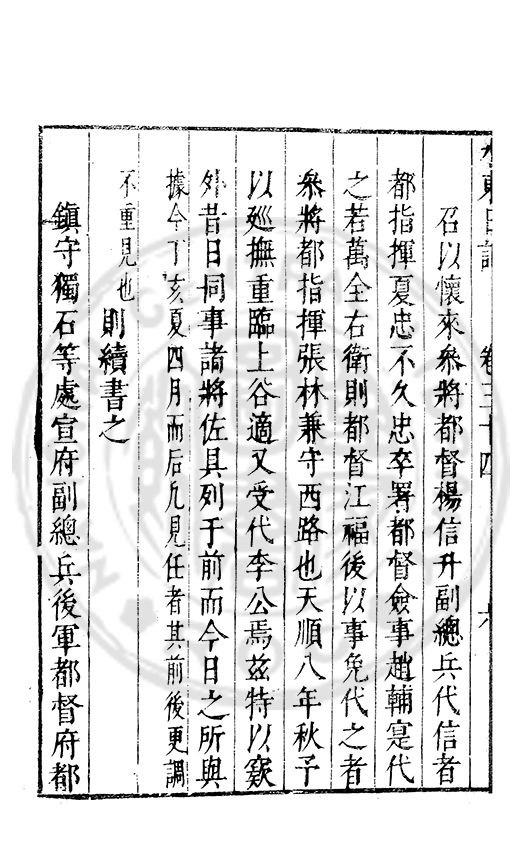 水東日記 卷三十四 六
召以懷來叅將都督楊信升副總兵代信者
都指揮夏忠不久忠卒署都督僉事趙輔寔代
之若萬全右衛則都督江福後以事免代之者
叅將都指揮張林兼守西路也天順八年秋予
以廵撫重臨上谷適又受代李公焉兹特以竅
外昔日同事諸將佐具列于前而今日之所與
據今丁亥夏四月而后凡見任者其前後更調
不重見也則續書之
鎮守獨石等處宣府副總兵後軍都督府都